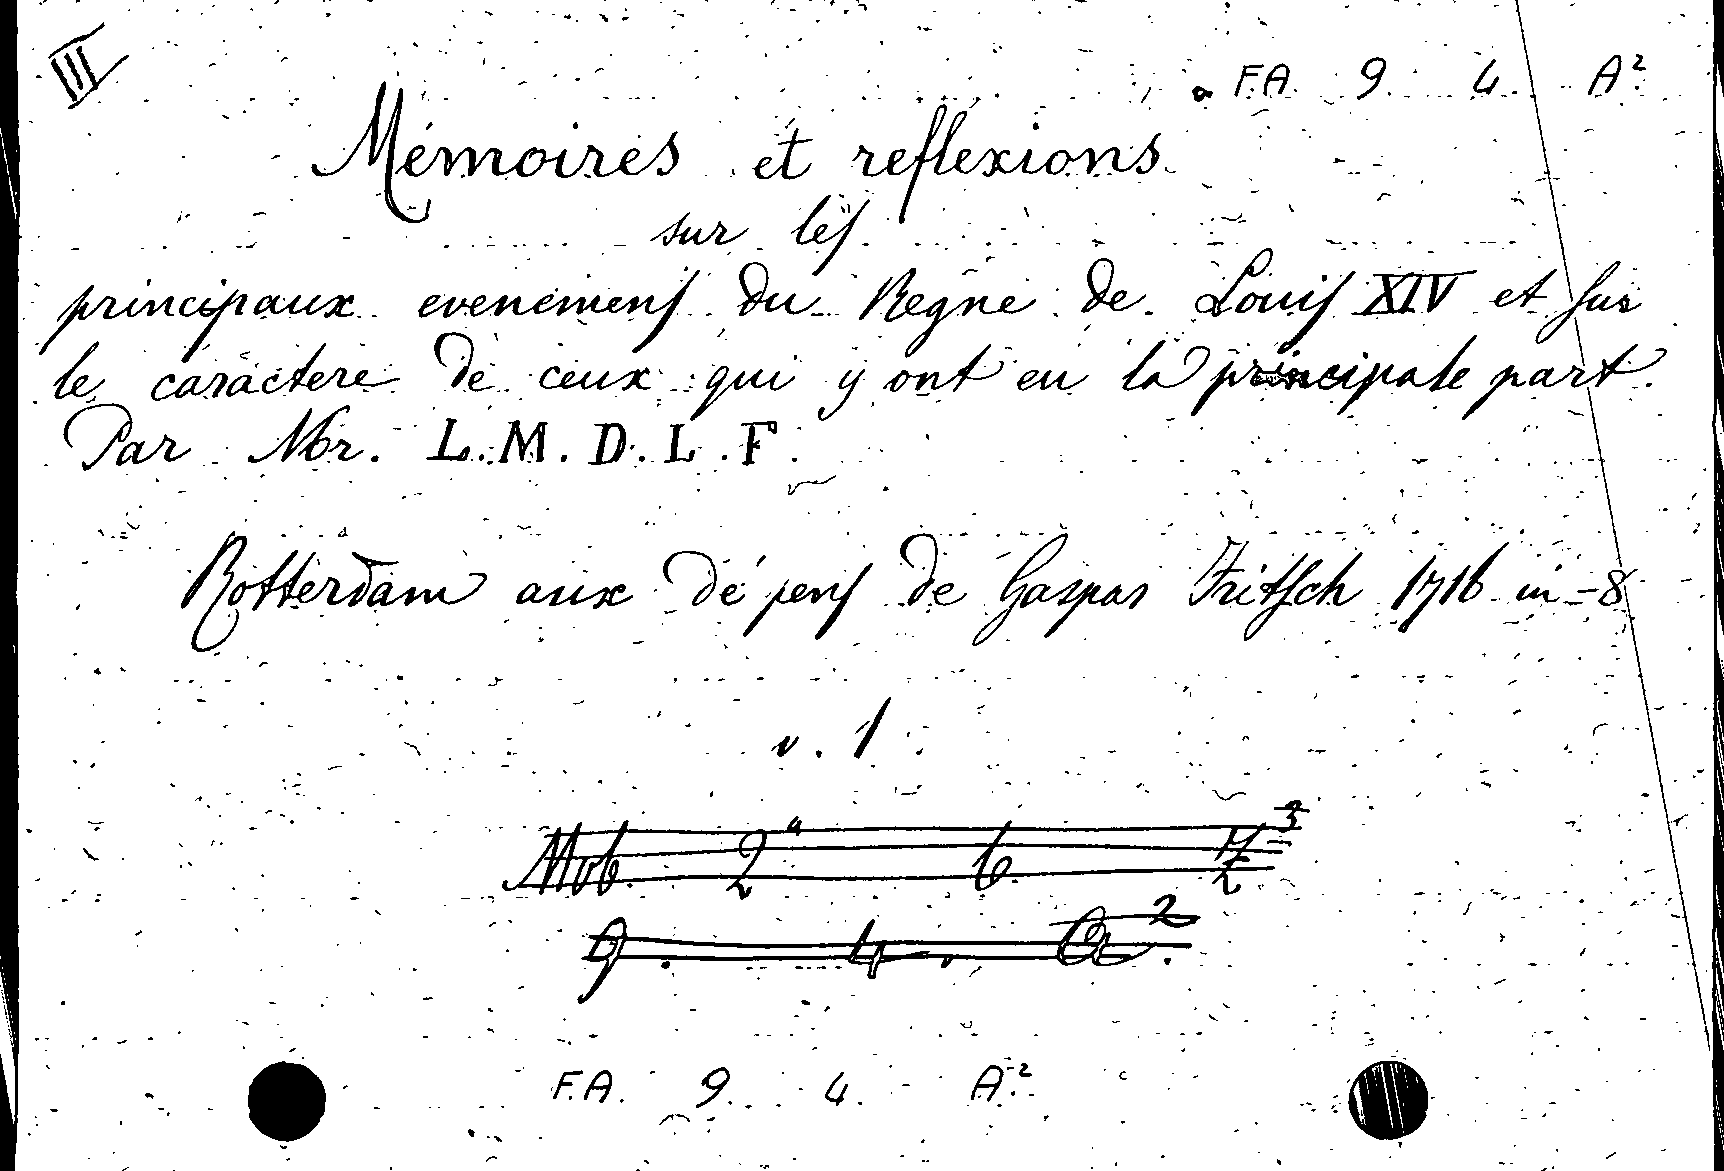 III
F.A. 9. 4. A²
Mémoires et reflexions
sur les
principaux evenemens du Regne de Louis XIV et sur
le caractere de ceux qui y ont eu la principale part.
Par Mr. L. M. D. L. F.
Rotterdam aux dé pens de Gaspar Fritsch 1716 in-8
v. 1
Mob. 2ᵃ 6.
9. 4. A².
F.A. 9. 4. A²